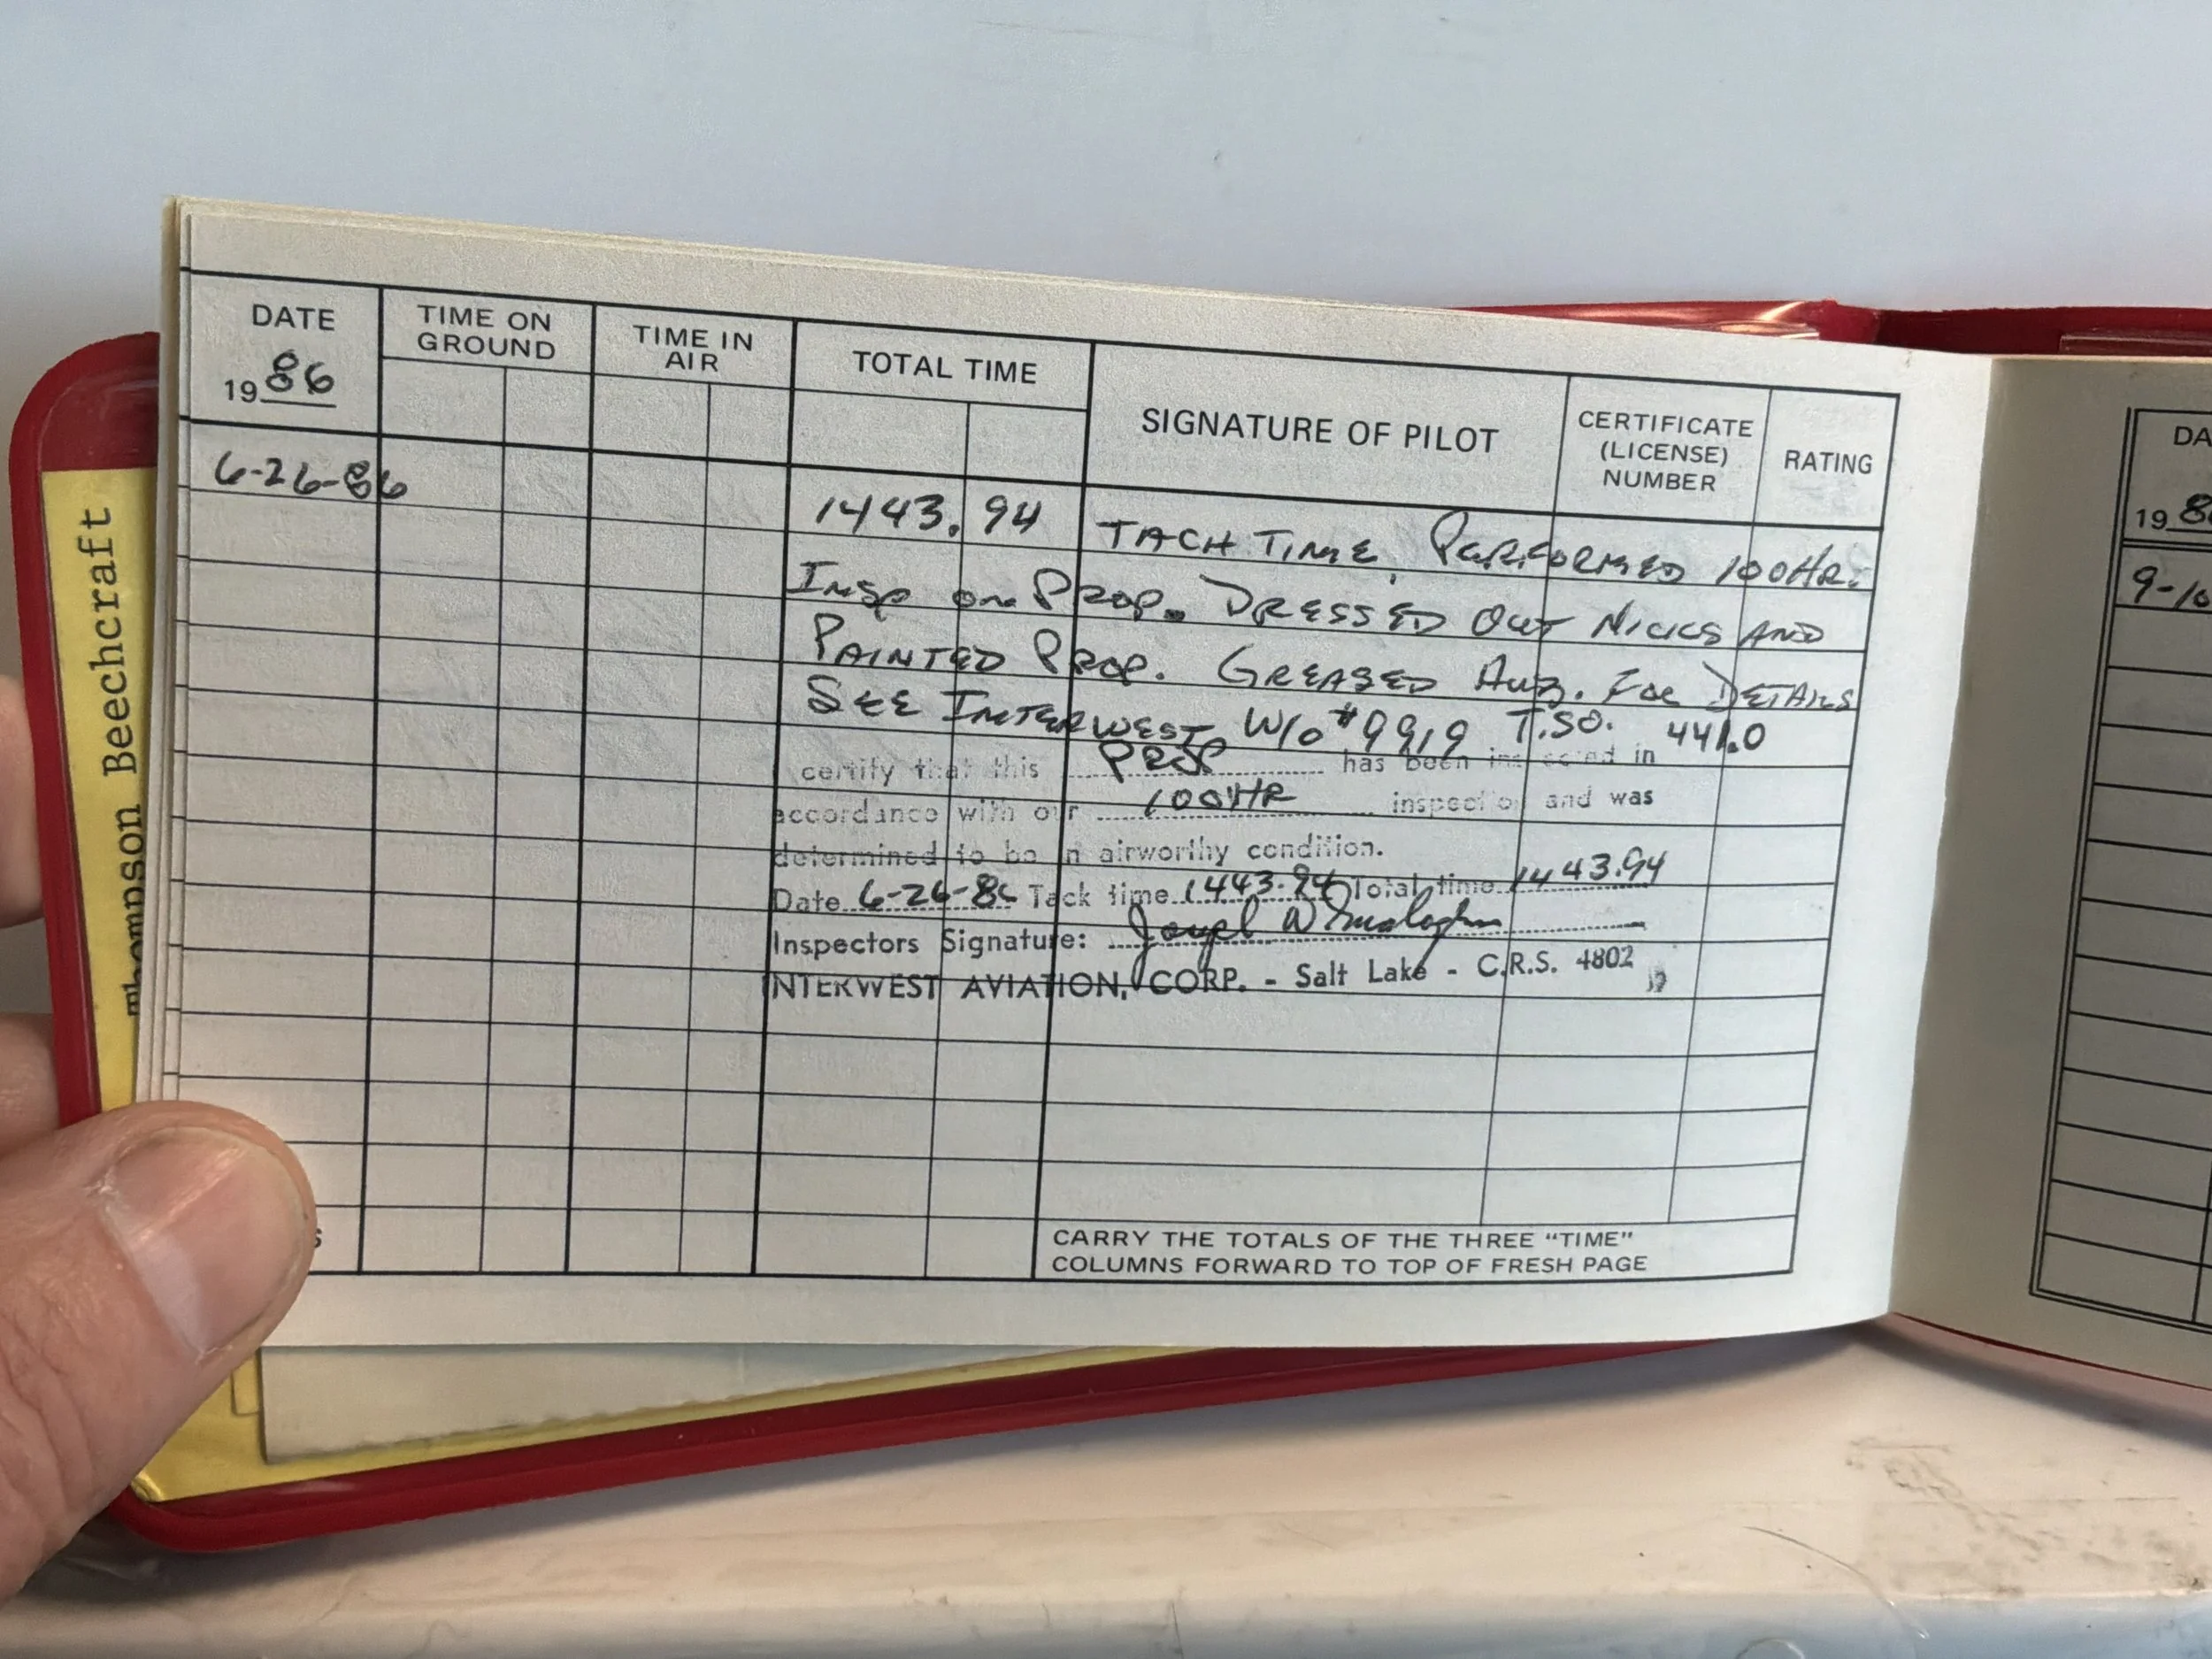 DATE
19 86
TIME ON GROUND
TIME IN AIR
TOTAL TIME
SIGNATURE OF PILOT
CERTIFICATE (LICENSE) NUMBER
RATING
6-26-86
1443.94 TACH TIME, PERFORMED 100HR.
INSP ON PROP. DRESSED OUT NICKS AND
PAINTED PROP. GREASED HUB. FOR DETAILS
SEE INTERWEST W/O #9919 T.S.O. 441.0
certify that this PROP has been inspected in
accordance with our 100HR inspection and was
determined to be in airworthy condition.
Date 6-26-86 Tack time 1443.94 Total time 1443.94
Inspectors Signature:
INTERWEST AVIATION, CORP. - Salt Lake - C.R.S. 4802
CARRY THE TOTALS OF THE THREE "TIME"
COLUMNS FORWARD TO TOP OF FRESH PAGE
Thompson Beechcraft
DA
19 8
9-10